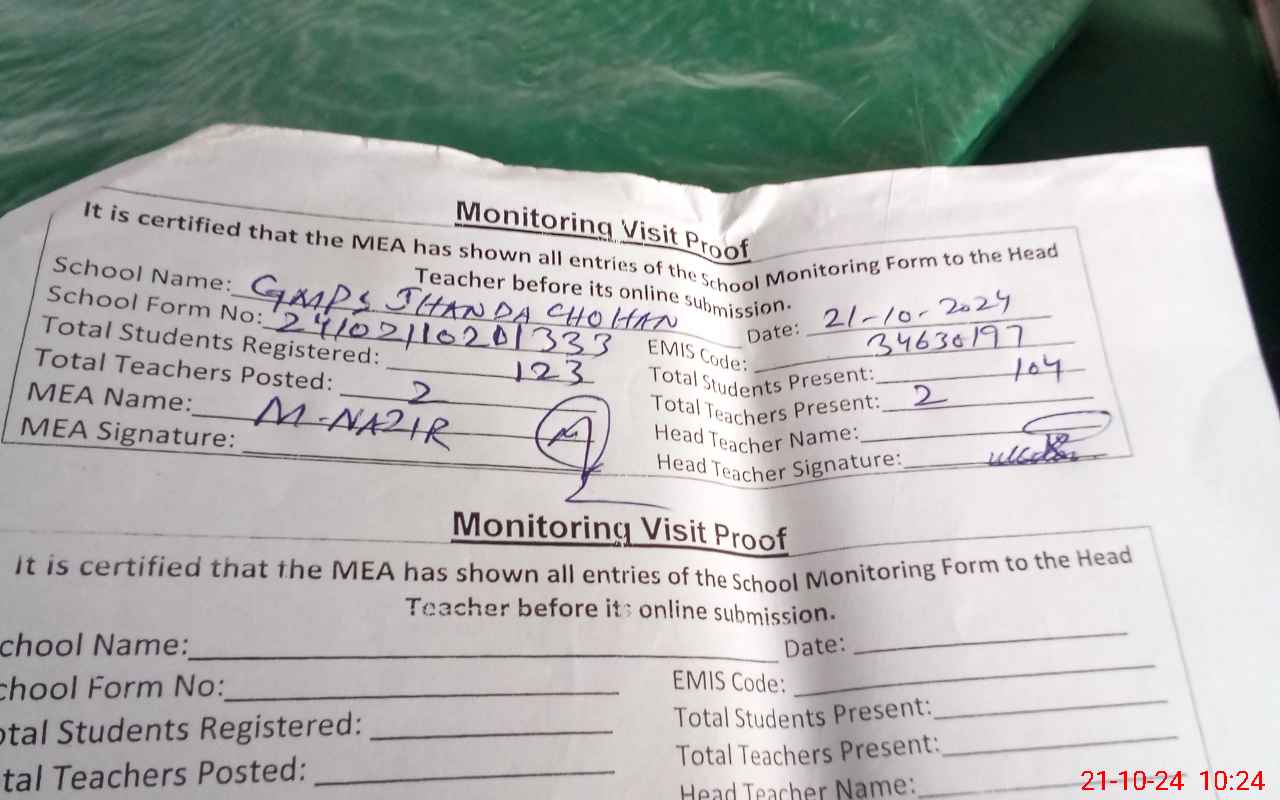 Monitoring Visit Proof
It is certified that the MEA has shown all entries of the School Monitoring Form to the Head
Teacher before its online submission.
School Name: GMPS JHANDA CHOHAN Date: 21-10-2024
School Form No: 24102110201333 EMIS Code: 34630197
Total Students Registered: 123 Total Students Present: 104
Total Teachers Posted: 2 Total Teachers Present: 2
MEA Name: M-NAZIR Head Teacher Name:
MEA Signature: Head Teacher Signature:
Monitoring Visit Proof
It is certified that the MEA has shown all entries of the School Monitoring Form to the Head
Teacher before its online submission.
chool Name: Date:
chool Form No: EMIS Code:
otal Students Registered: Total Students Present:
tal Teachers Posted: Total Teachers Present:
Head Teacher Name:
21-10-24 10:24